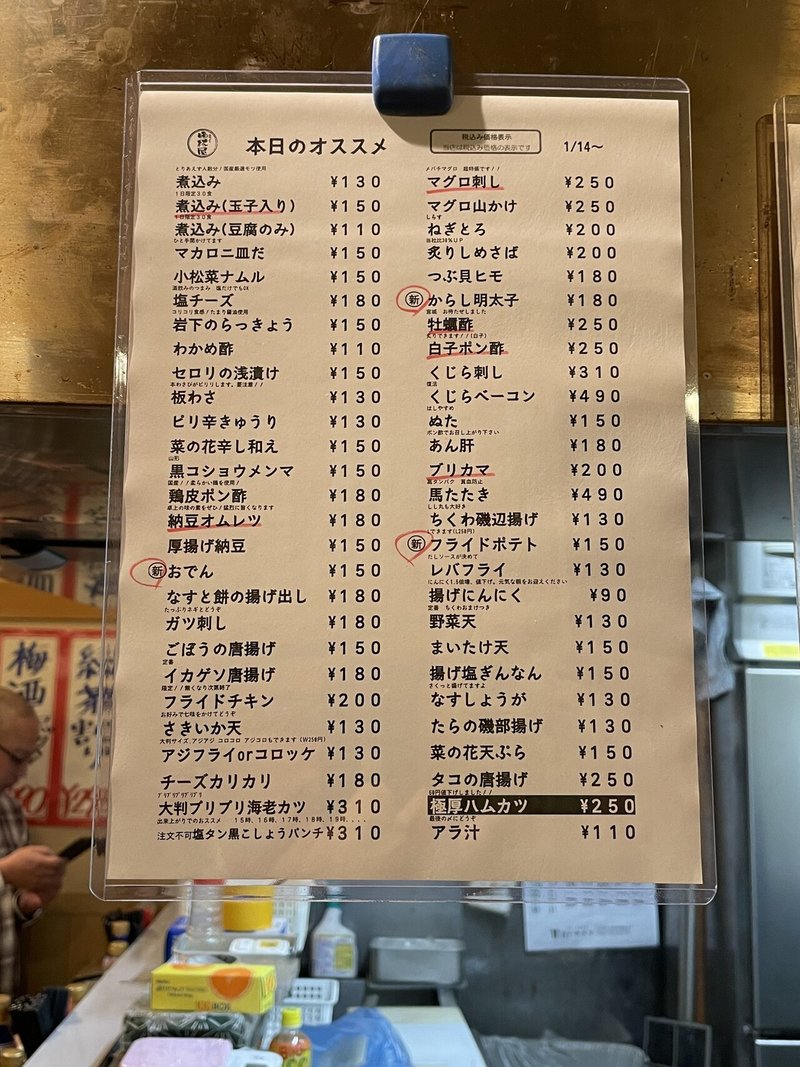 本日のオススメ
税込み価格表示
当店は税込み価格の表示です
1/14〜
とりあえず人数分/国産厳選モツ使用
煮込み ¥130
1日限定30食
煮込み(玉子入り) ¥150
1日限定30食
煮込み(豆腐のみ) ¥110
ひと手間かけてます
マカロニ皿だ ¥150
小松菜ナムル ¥150
酒飲みのつまみ 塩だけでもOK
塩チーズ ¥180
コリコリ食感/たまり醤油使用
岩下のらっきょう ¥150
わかめ酢 ¥110
セロリの浅漬け ¥150
本わさびがピリリします。要注意//
板わさ ¥130
ピリ辛きゅうり ¥130
菜の花辛し和え ¥150
山形
黒コショウメンマ ¥150
国産//柔らかい鶏を使用/
鶏皮ポン酢 ¥180
卓上の味の素をぜひ/猛烈に旨くなります
納豆オムレツ ¥180
厚揚げ納豆 ¥150
新 おでん ¥150
なすと餅の揚げ出し ¥180
たっぷりネギとどうぞ
ガツ刺し ¥180
ごぼうの唐揚げ ¥150
定番
イカゲソ唐揚げ ¥180
限定//無くなり次第終了
フライドチキン ¥200
お好みで七味をかけてどうぞ
さきいか天 ¥130
大判サイズ.アジアジ コロコロ アジコロもできます (W250円)
アジフライorコロッケ ¥130
チーズカリカリ ¥180
プリプリプリプリプリ
大判プリプリ海老カツ ¥310
出来上がりでのおススメ 15時、16時、17時、18時、19時....
注文不可塩タン黒こしょうパンチ ¥310
メバチマグロ 超特価です//
マグロ刺し ¥250
マグロ山かけ ¥250
しらす
ねぎとろ ¥200
当社比30%UP
炙りしめさば ¥200
つぶ貝ヒモ ¥180
新 からし明太子 ¥180
宮城 お待たせしました
牡蠣酢 ¥250
炙りできます//(白子)
白子ポン酢 ¥250
くじら刺し ¥310
復活
くじらベーコン ¥490
はしやすめ
ぬた ¥150
ポン酢でお召し上がり下さい
あん肝 ¥180
ブリカマ ¥200
高タンパク 貧血防止
馬たたき ¥490
しし丸も大好き
ちくわ磯辺揚げ ¥130
できます(L250円)
新 フライドポテト ¥150
だしソースが決めて
レバフライ ¥130
にんにく1.5倍増、値下げ。元気な朝をお迎えください
揚げにんにく ¥90
定番 ちくわおまけつき
野菜天 ¥130
まいたけ天 ¥150
揚げ塩ぎんなん ¥150
さくっと揚げてますよ
なすしょうが ¥130
たらの磯部揚げ ¥130
菜の花天ぷら ¥150
タコの唐揚げ ¥250
50円値下げしました//
極厚ハムカツ ¥250
最後の〆にどうぞ
アラ汁 ¥110
梅酒